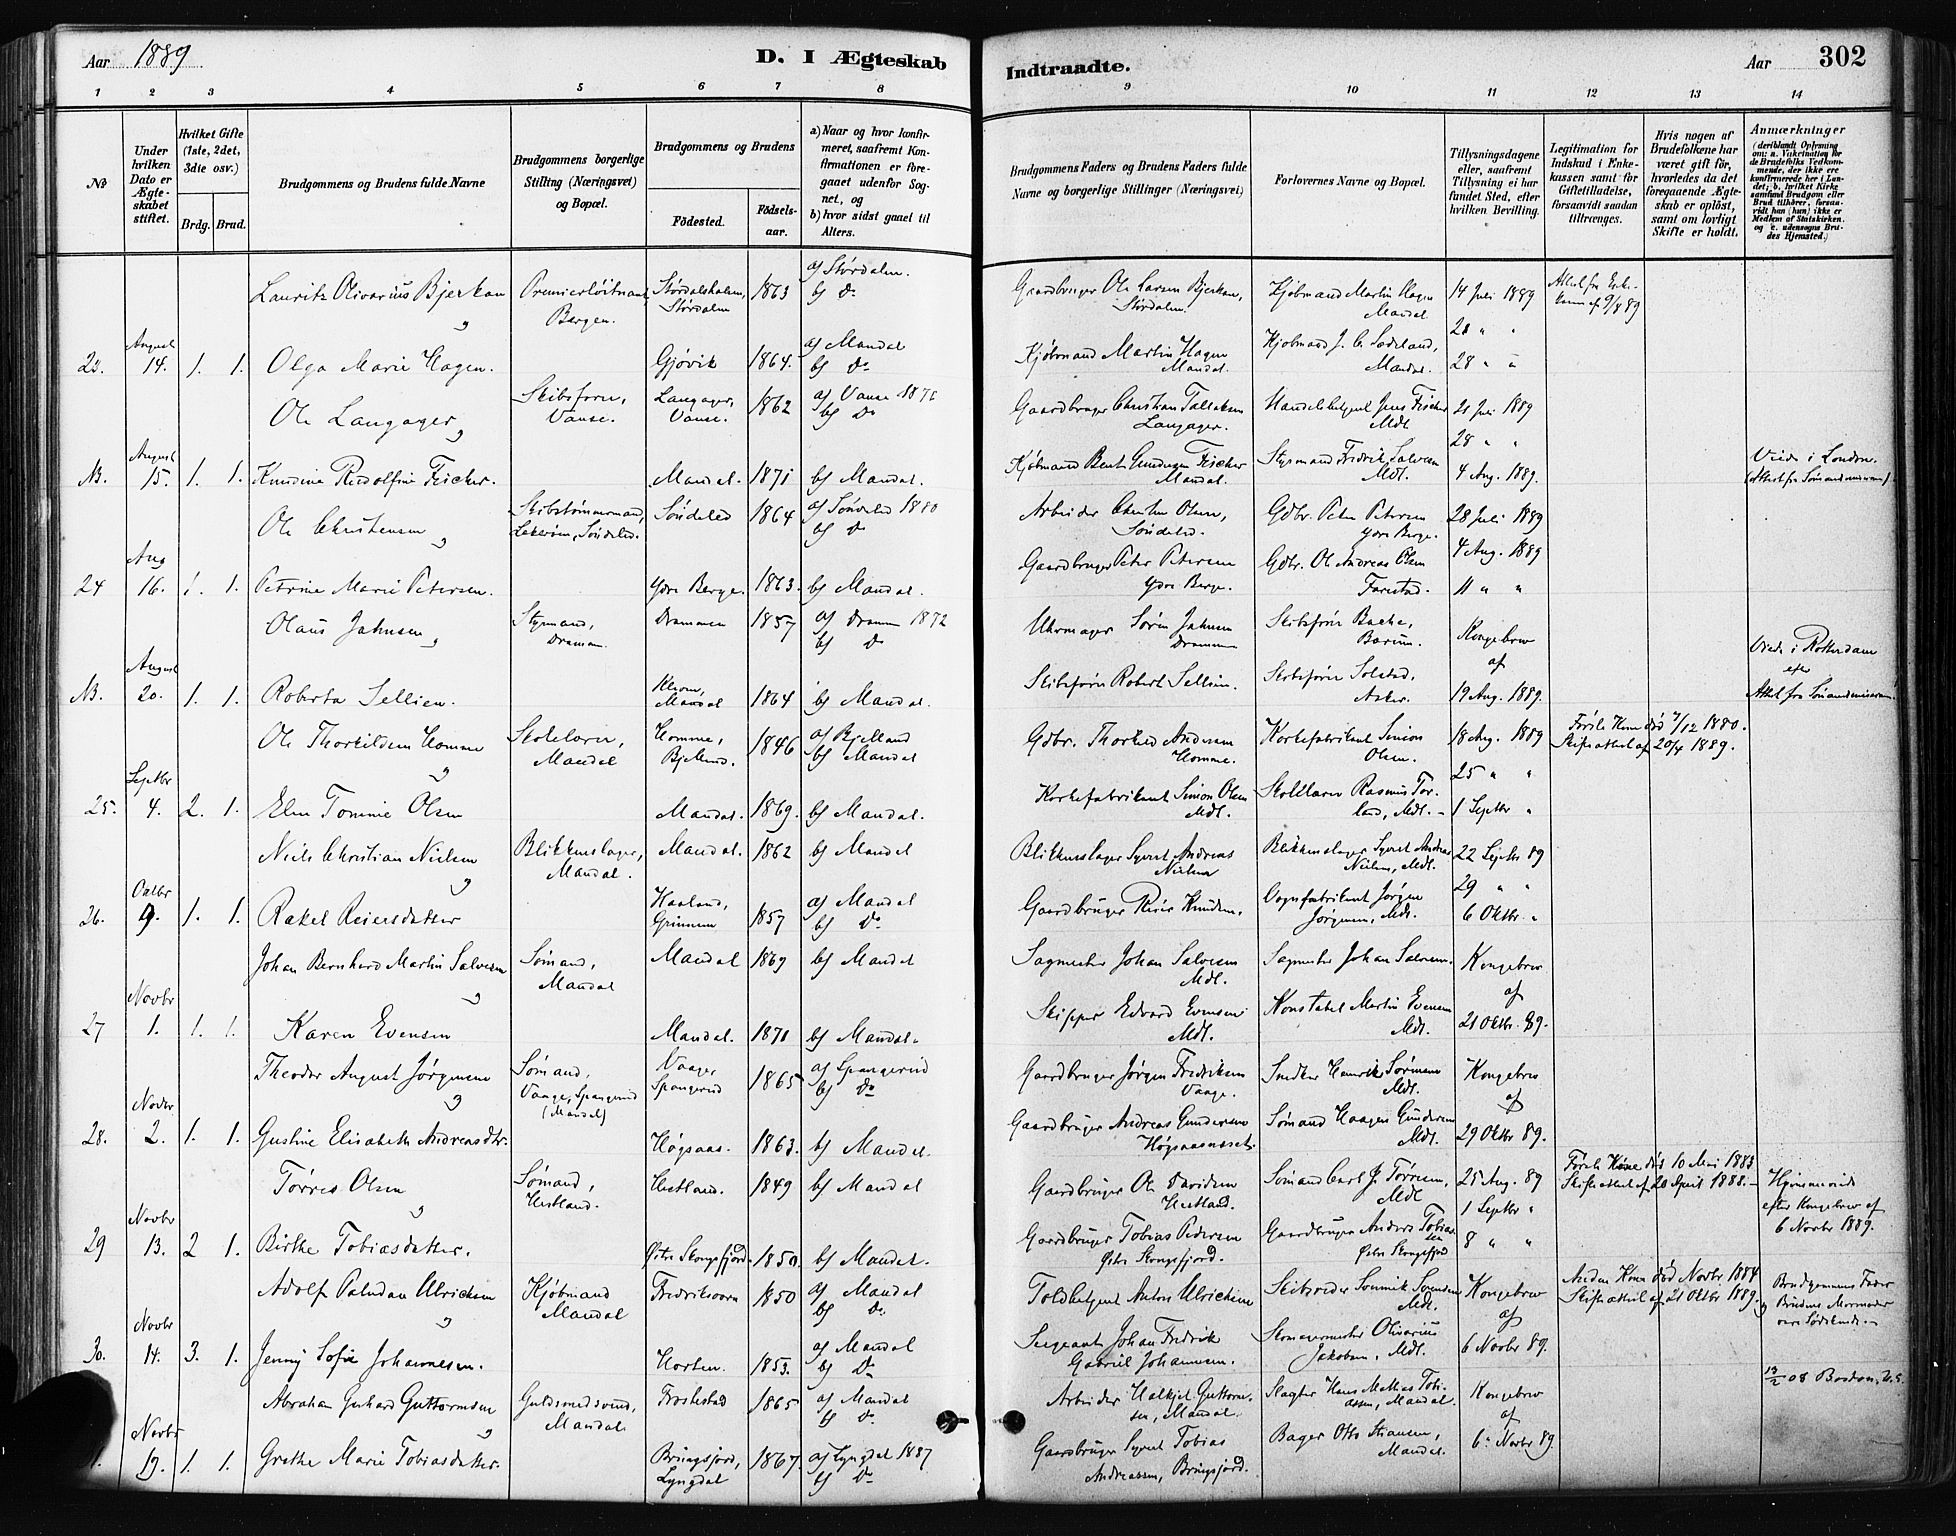 Aar 1889
D. I Ægteskab
Indtraadte.
Aar
302
1 2 3 4 5 6 7 8 9 10 11 12 13 14
No
Under hvilken Dato er Ægteskabet stiftet.
Hvilket Gifte (1ste, 2det, 3die osv.)
Brdg. Brud.
Brudgommens og Brudens fulde Navne
Brudgommens borgerlige Stilling (Næringsvei) og Bopæl.
Brudgommens og Brudens
Fødested.
Fødselsaar.
a) Naar og hvor konfirmeret, saafremt Konfirmationen er foregaaet udenfor Sognet, og
b) hvor sidst gaaet til Alters.
Brudgommens Faders og Brudens Faders fulde Navne og borgerlige Stillinger (Næringsvei)
Forlovernes Navne og Bopæl.
Tillysningsdagene eller, saafremt Tillysning ei har fundet Sted, efter hvilken Bevilling.
Legitimation for Indskud i Enkekassen samt for Giftetilladelse, forsaavidt saadan tiltrænges.
Hvis nogen af Brudefolkene har været gift før, hvorledes da det foregaaende Ægteskab er opløst, samt om lovligt Skifte er holdt.
Anmærkninger (deriblandt Oplysning om: a. Vaksination for de Brudefolks Vedkommende, der ikke ere konfirmerede her i Landet; b. hvilket Kirkesamfund Brudgom eller Brud tilhører, forsaavidt han (hun) ikke er Medlem af Statskirken. og c. udensogns Brudes Hjemsted.)
Lauritz Olivarius Bjerkan Premierløitnant, Bergen. Størdalshalsen, Størdalen 1863 a) Størdalen. b) Do Gaardbruger Ole Larsen Bjerkan, Størdalen. Kjøbmand Martin Hagen Mandal 14 Juli 1889
23. August 14. 1. 1. Olga Marie Hagen. Gjøvik 1864. a) Mandal b) Do Kjøbmand Martin Hagen Mandal. Mandal. 28 " "
Ole Langager Skibsfører, Vanse. Langager, Vanse. 1862 a) Vanse 1876 b) Do Gaardbruger Christian Tallaksen Langager. Jens Fischer Mdl. 21 Juli 1889 28 " "
N. August 15. 1. 1. Knudine Rudolfine Fischer. Mandal. 1871 b) Mandal. Kjøbmand Bent Fischer Mandal. Styrmand Fredrik Salvesen Mdl. 4 Aug. 1889. Viede i London.
Ole Christensen Skibstømmermand, Søndeled. Søndeled 1864 a) Søndeled 1880 b) Do Arbeider Christen Olsen, Søndeled. Gdbr. Peter Petersen Ydre Berge. 28 Juli 1889 4 Aug. 1889
24 Aug 16. 1. 1. Petrine Marie Petersen. Ydre Berge. 1863. b) Mandal. Gaardbruger Peter Petersen Ydre Berge. Gdbr. Ole Andreas Olsen Farestad. 11 " "
Olaus Jahnsen Styrmand, Drammen. Drammen 1857 a) Drammen 1872 b) Do Uhrmager Søren Jahnsen Drammen Skibsfører Bache, Bærum. Kongebrev af
N. August 20. 1. 1. Roberta Sellien. Mandal 1864 b) Mandal. Skibsfører Robert Sellien. Skibsfører Solstad, Asker. 19 Aug. 1889. Viede i Rotterdam efter
Ole Thorkildsen Homme Skolelærer, Mandal Homme, Bjelland. 1846 a) Bjelland b) Mandal Gdbr. Thorkild Andersen Homme. Korkefabrikant Simon Olsen. 18 Aug. 1889 25 " " Første Kone død 7/12 1880. Skifteattest af 20/4 1889.
25. Septbr 4. 2. 1. Elen Tomine Olsen Mandal. 1869. b) Mandal. Korkefabrikant Simon Olsen Mdl. Skolelærer Rasmus Torland, Mdl. 1 Septbr "
Niels Christian Nielsen Blikkenslager, Mandal. Mandal. 1862 b) Mandal Blikkenslager Syvert Andreas Nielsen Blikkenslager Syvert Andreas Nielsen, Mdl. 22 Septbr 89 29 " "
26. Octbr 9. 1. 1. Rakel Reiersdatter Haaland, 1857 a) Mandal b) Do Gaardbruger Reier Knudsen, Vognfabrikant Jørgen Jørgensen, Mdl. 6 Oktbr "
Johan Bernhard Martin Salvesen Sømand, Mandal Mandal 1869 b) Mandal Sagmester Johan Salvesen Mdl. Sagmester Johan Salvesen. Kongebrev af
27 Novbr 1. 1. 1. Karen Evensen Mandal. 1871 b) Mandal. Skipper Edvard Evensen Mdl. Konstabel Martin Evensen Mdl. 21 Oktbr. 89.
Theodor August Jørgensen Sømand, Vaage, Spangerud (Mandal) Vaage Spangerud 1865 a) Spangerud b) Do Gaardbruger Jørgen Fredriksen Vaage. Snedker Henrik Sørensen Mdl. Kongebrev af
28. Novbr. 2. 1. 1. Gustine Elisabeth Andreasdtr. Høgsaas. 1863. b) Mandal. Gaardbruger Andreas Gundersen Høgsaasnæset. Sømand Haagen Gundersen Mdl. 29 Oktbr 89.
Tørres Olsen Sømand, Hestland. Hestland. 1849 b) Mandal Gaardbruger Ole Davidsen Hestland. Sømand Carl J. Tørresen, Mdl 25 Aug. 89 1 Septbr " Første Kone død 10 Mai 1883 Skifteattest af 20 April 1888. Hjemmeviede efter Kongebrev af 6 Novbr 1889.
29 Novbr 13. 2 1. Birthe Tobiasdatter. Østre Skogsfjord 1850. b) Mandal. Gaardbruger Tobias Pedersen Østre Skogsfjord. Gaardbruger Anders Tobiassen Østre Skogsfjord 8 " "
Adolf Paludan Ulrichsen Kjøbmand Mandal Fredriksværn 1850 a) Mandal b) Do Toldbetjent Anton Ulrichsen Mdl. Kongebrev af Anden Kone død Novbr 1884 Skifteattest af 21 Oktbr 1889. Brudgommens Fader og Brudens Mormoder vare Sødskende.
30. Novbr 14. 3. 1. Jenny Sofie Johannesen. Horten. 1853. a) Mandal b) Do Sergeant Johan Fredrik Gabriel Johannesen. Skomagermester Olivarius Jakobsen, Mdl. 6 Novbr 89.
Abraham Gerhard Guttormsen Guldsmedsvend, Mandal. Frostestad 1865 a) Mandal b) Do Arbeider Halkjel Guttormsen, Mandal. Slagter Hans Mathias Tobiassen, Mandal. Kongebrev af 13/2 08 Boston, U.S.
Novbr 17. 1. 1. Grethe Marie Tobiasdatter. Bringsjord, Lyngdal 1867. a) Lyngdal 1887 b) Do Gaardbruger Syvert Tobias Andreassen, Bringsjord. Bager Otto Stiansen, Mandal. 6. Novbr 89.